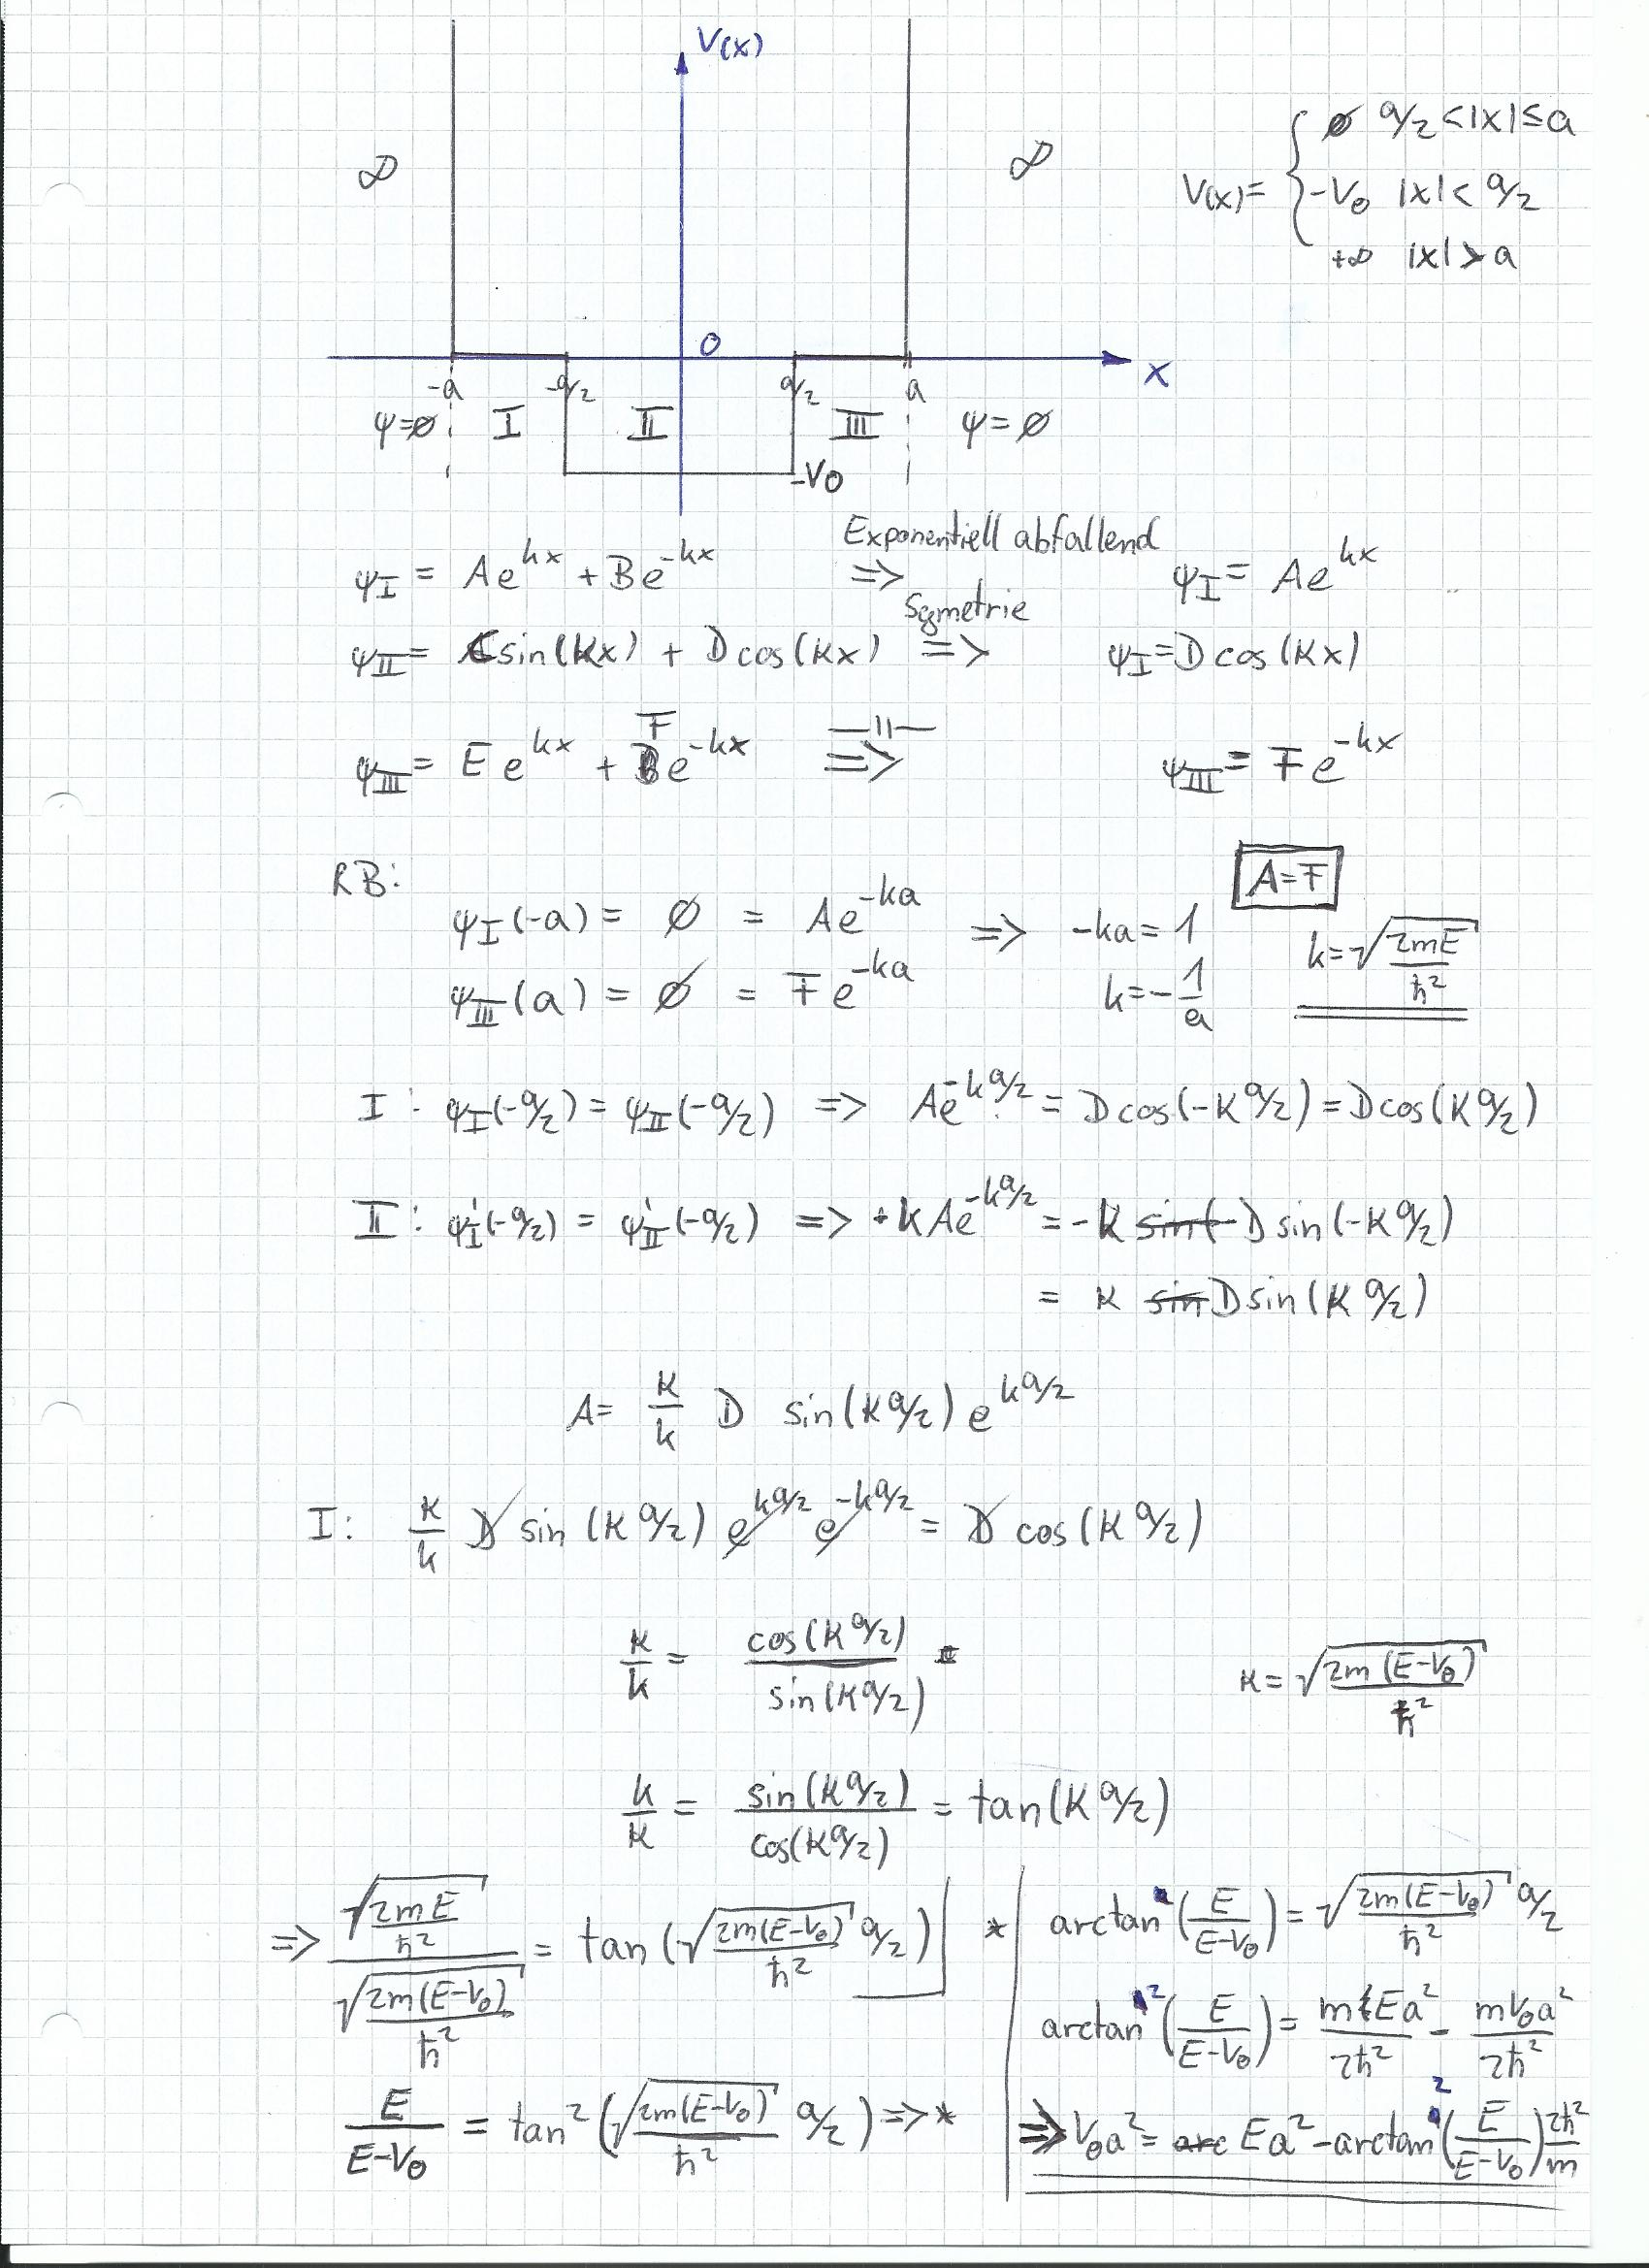 V(x)
∞
∞
V(x) = { ∅ a/2 < |x| ≤ a
-V₀ |x| < a/2
+∞ |x| > a
0
x
-a
-a/2
a/2
a
ψ=∅ I II III ψ=∅
-V0
ψ_I = Ae^{kx} + Be^{-kx} Exponentiell abfallend => ψ_I = Ae^{kx}
ψ_II = C sin(Kx) + D cos(Kx) Symetrie => ψ_I = D cos(Kx)
ψ_III = E e^{kx} + F e^{-kx} —||— => ψ_III = F e^{-kx}
RB:
A=F
ψ_I(-a) = ∅ = Ae^{-ka} => -ka = 1
k = √(2mE/ħ²)
ψ_III(a) = ∅ = Fe^{-ka} k = -1/a
I: ψ_I(-a/2) = ψ_II(-a/2) => Ae^{-k a/2} = D cos(-K a/2) = D cos(K a/2)
II: ψ'_I(-a/2) = ψ'_II(-a/2) => +k Ae^{-k a/2} = -K D sin(-K a/2)
= K D sin(K a/2)
A = K/k D sin(K a/2) e^{k a/2}
I: K/k D sin(K a/2) e^{k a/2} e^{-k a/2} = D cos(K a/2)
K/k = cos(K a/2) / sin(K a/2)
K = √(2m(E-V₀)/ħ²)
k/K = sin(K a/2) / cos(K a/2) = tan(K a/2)
=> √(2mE/ħ²) / √(2m(E-V₀)/ħ²) = tan(√(2m(E-V₀)/ħ²) a/2)
E/(E-V₀) = tan²(√(2m(E-V₀)/ħ²) a/2) => *
* arctan(E/(E-V₀)) = √(2m(E-V₀)/ħ²) a/2
arctan²(E/(E-V₀)) = mEa²/2ħ² - mV₀a²/2ħ²
=> V₀a² = Ea² - arctan²(E/(E-V₀)) 2ħ²/m